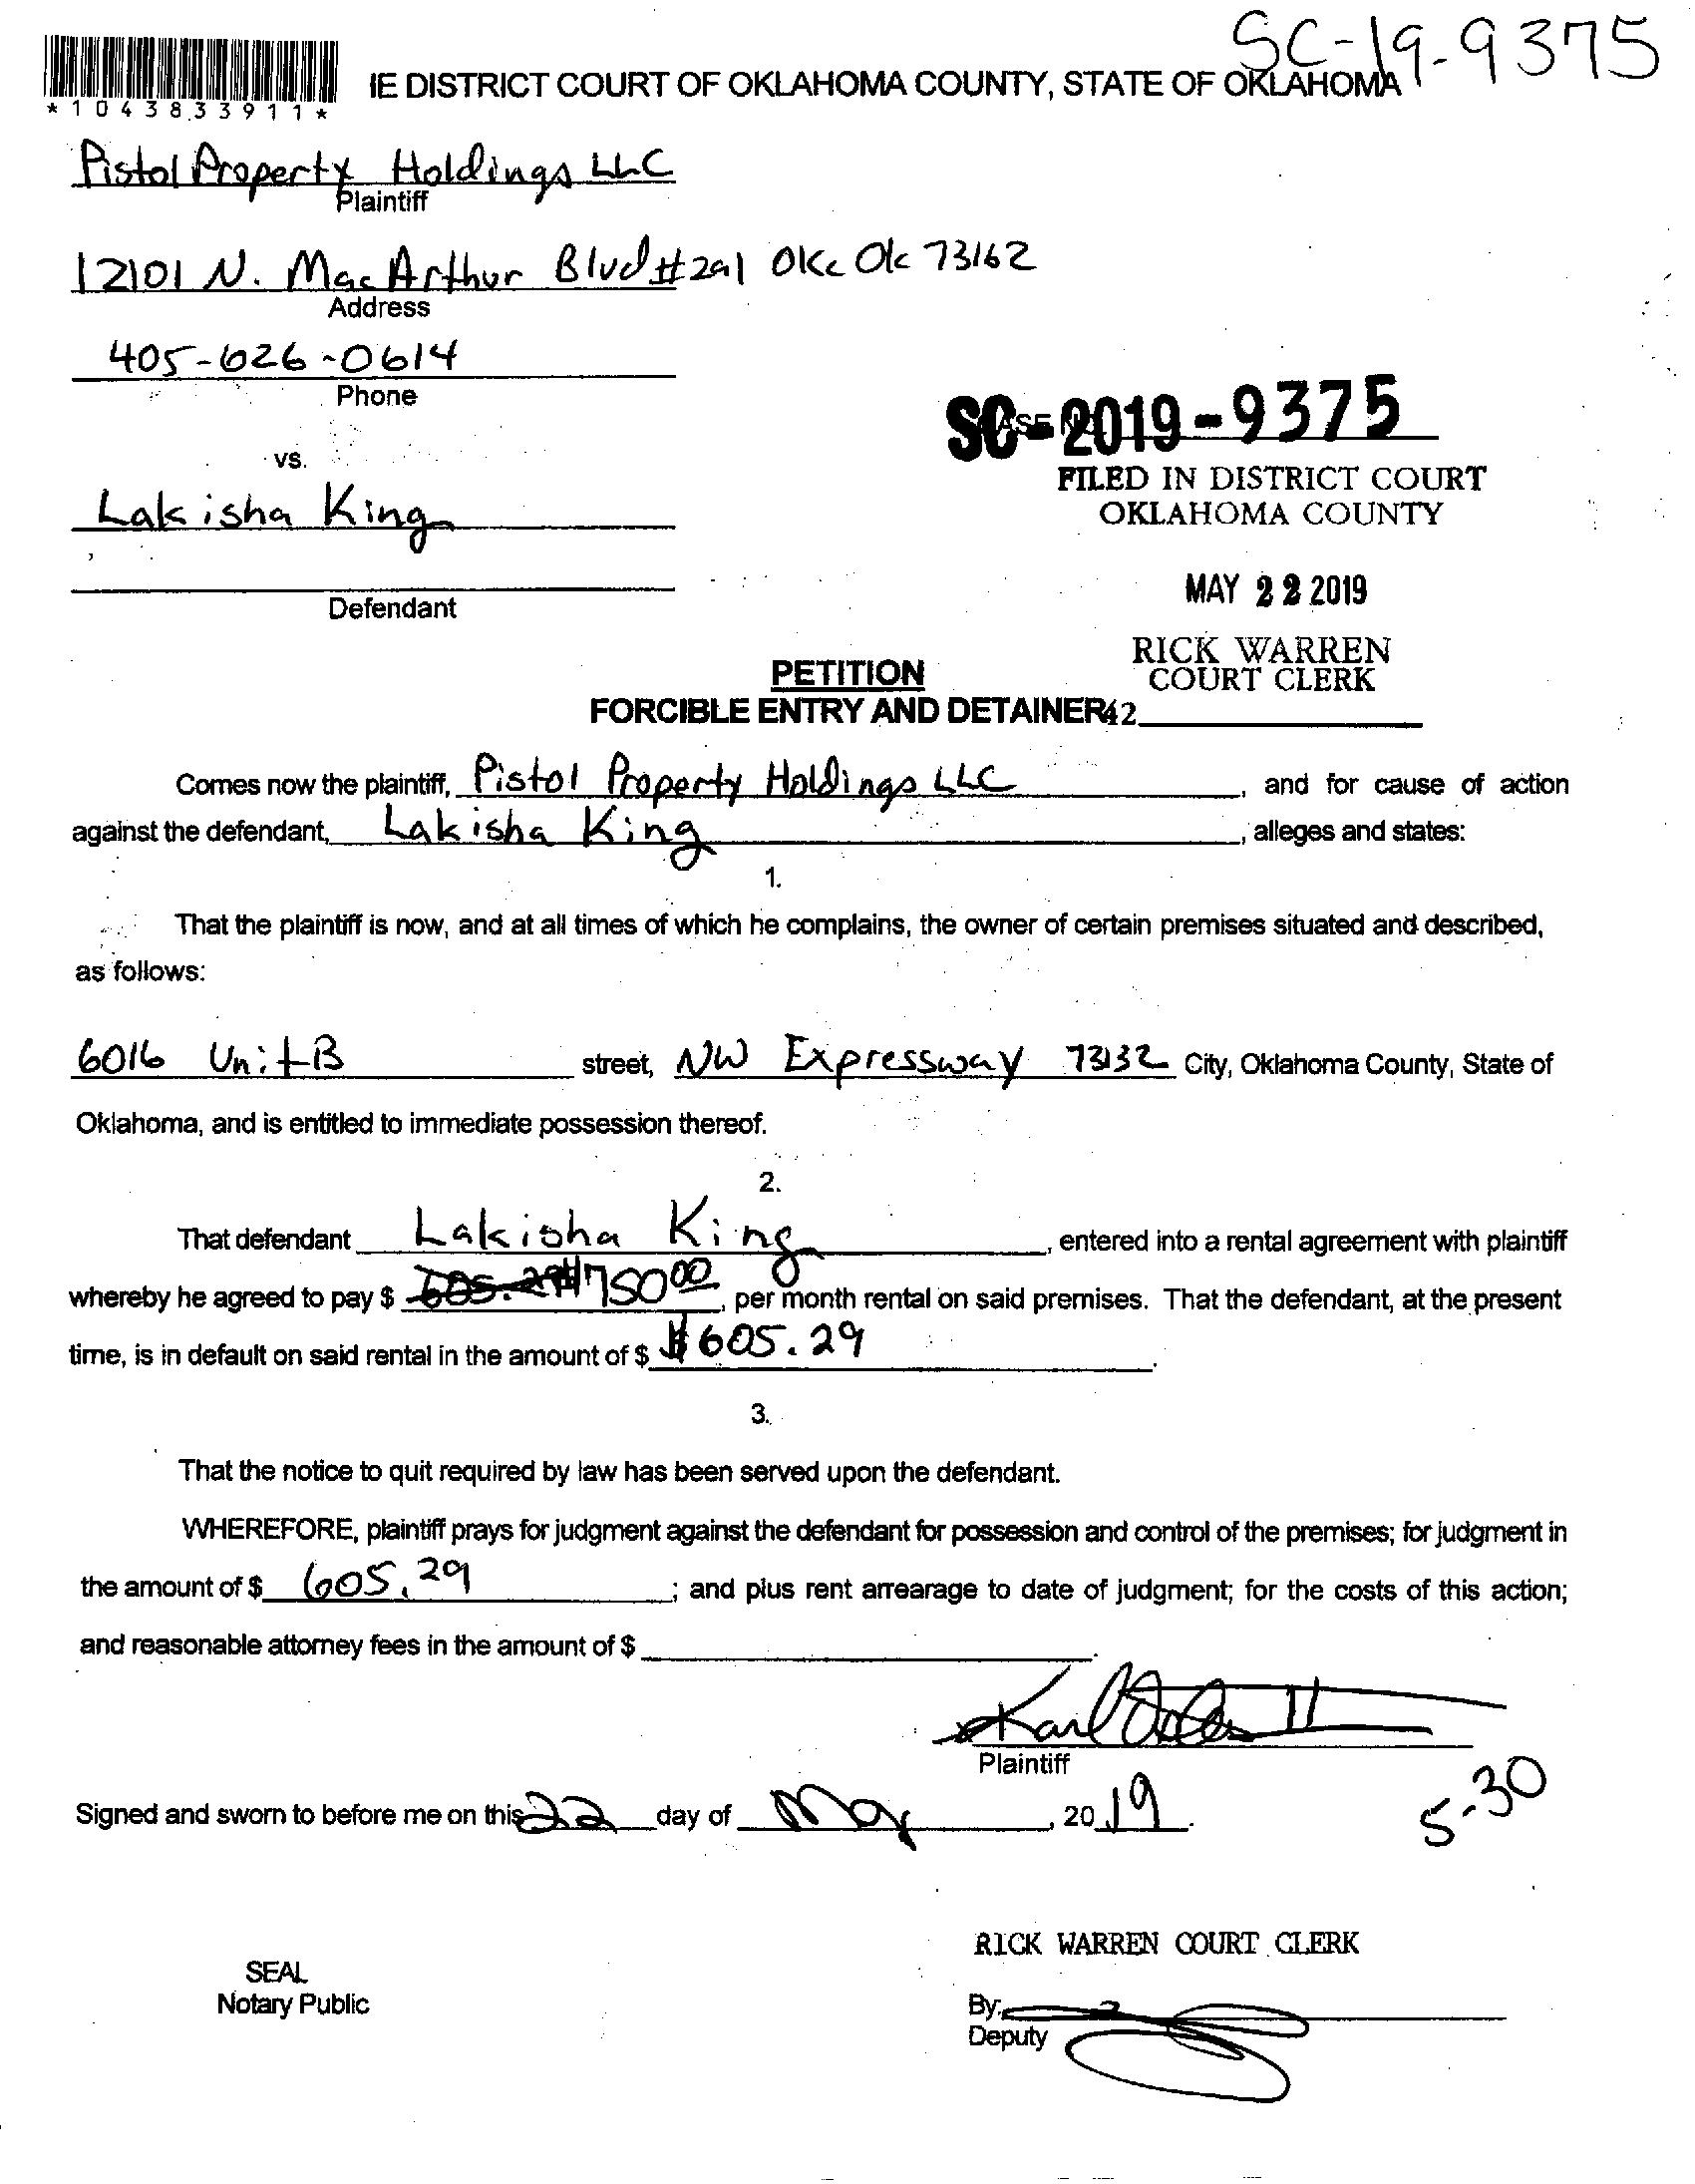 SC-19-9375
IE DISTRICT COURT OF OKLAHOMA COUNTY, STATE OF OKLAHOMA
*1043833911*
Pistol Property Holdings LLC
Plaintiff
12101 N. MacArthur Blvd #291 OKc Ok 73162
Address
405-626-0614
Phone
SC-2019-9375
vs.
FILED IN DISTRICT COURT
OKLAHOMA COUNTY
Lakisha King
,
MAY 22 2019
Defendant
RICK WARREN
COURT CLERK
PETITION
FORCIBLE ENTRY AND DETAINER 42
Comes now the plaintiff, Pistol Property Holdings LLC, and for cause of action
against the defendant, Lakisha King, alleges and states:
1.
That the plaintiff is now, and at all times of which he complains, the owner of certain premises situated and described,
as follows:
6016 Unit B street, NW Expressway 73132 City, Oklahoma County, State of
Oklahoma, and is entitled to immediate possession thereof.
2.
That defendant Lakisha King, entered into a rental agreement with plaintiff
whereby he agreed to pay $ 605.29 750 00, per month rental on said premises. That the defendant, at the present
time, is in default on said rental in the amount of $ $605.29.
3.
That the notice to quit required by law has been served upon the defendant.
WHEREFORE, plaintiff prays for judgment against the defendant for possession and control of the premises; for judgment in
the amount of $ 605.29; and plus rent arrearage to date of judgment; for the costs of this action;
and reasonable attorney fees in the amount of $.
Karl II
Plaintiff
Signed and sworn to before me on this 22 day of May, 2019.
5-30
RICK WARREN COURT CLERK
SEAL
Notary Public
By:
Deputy